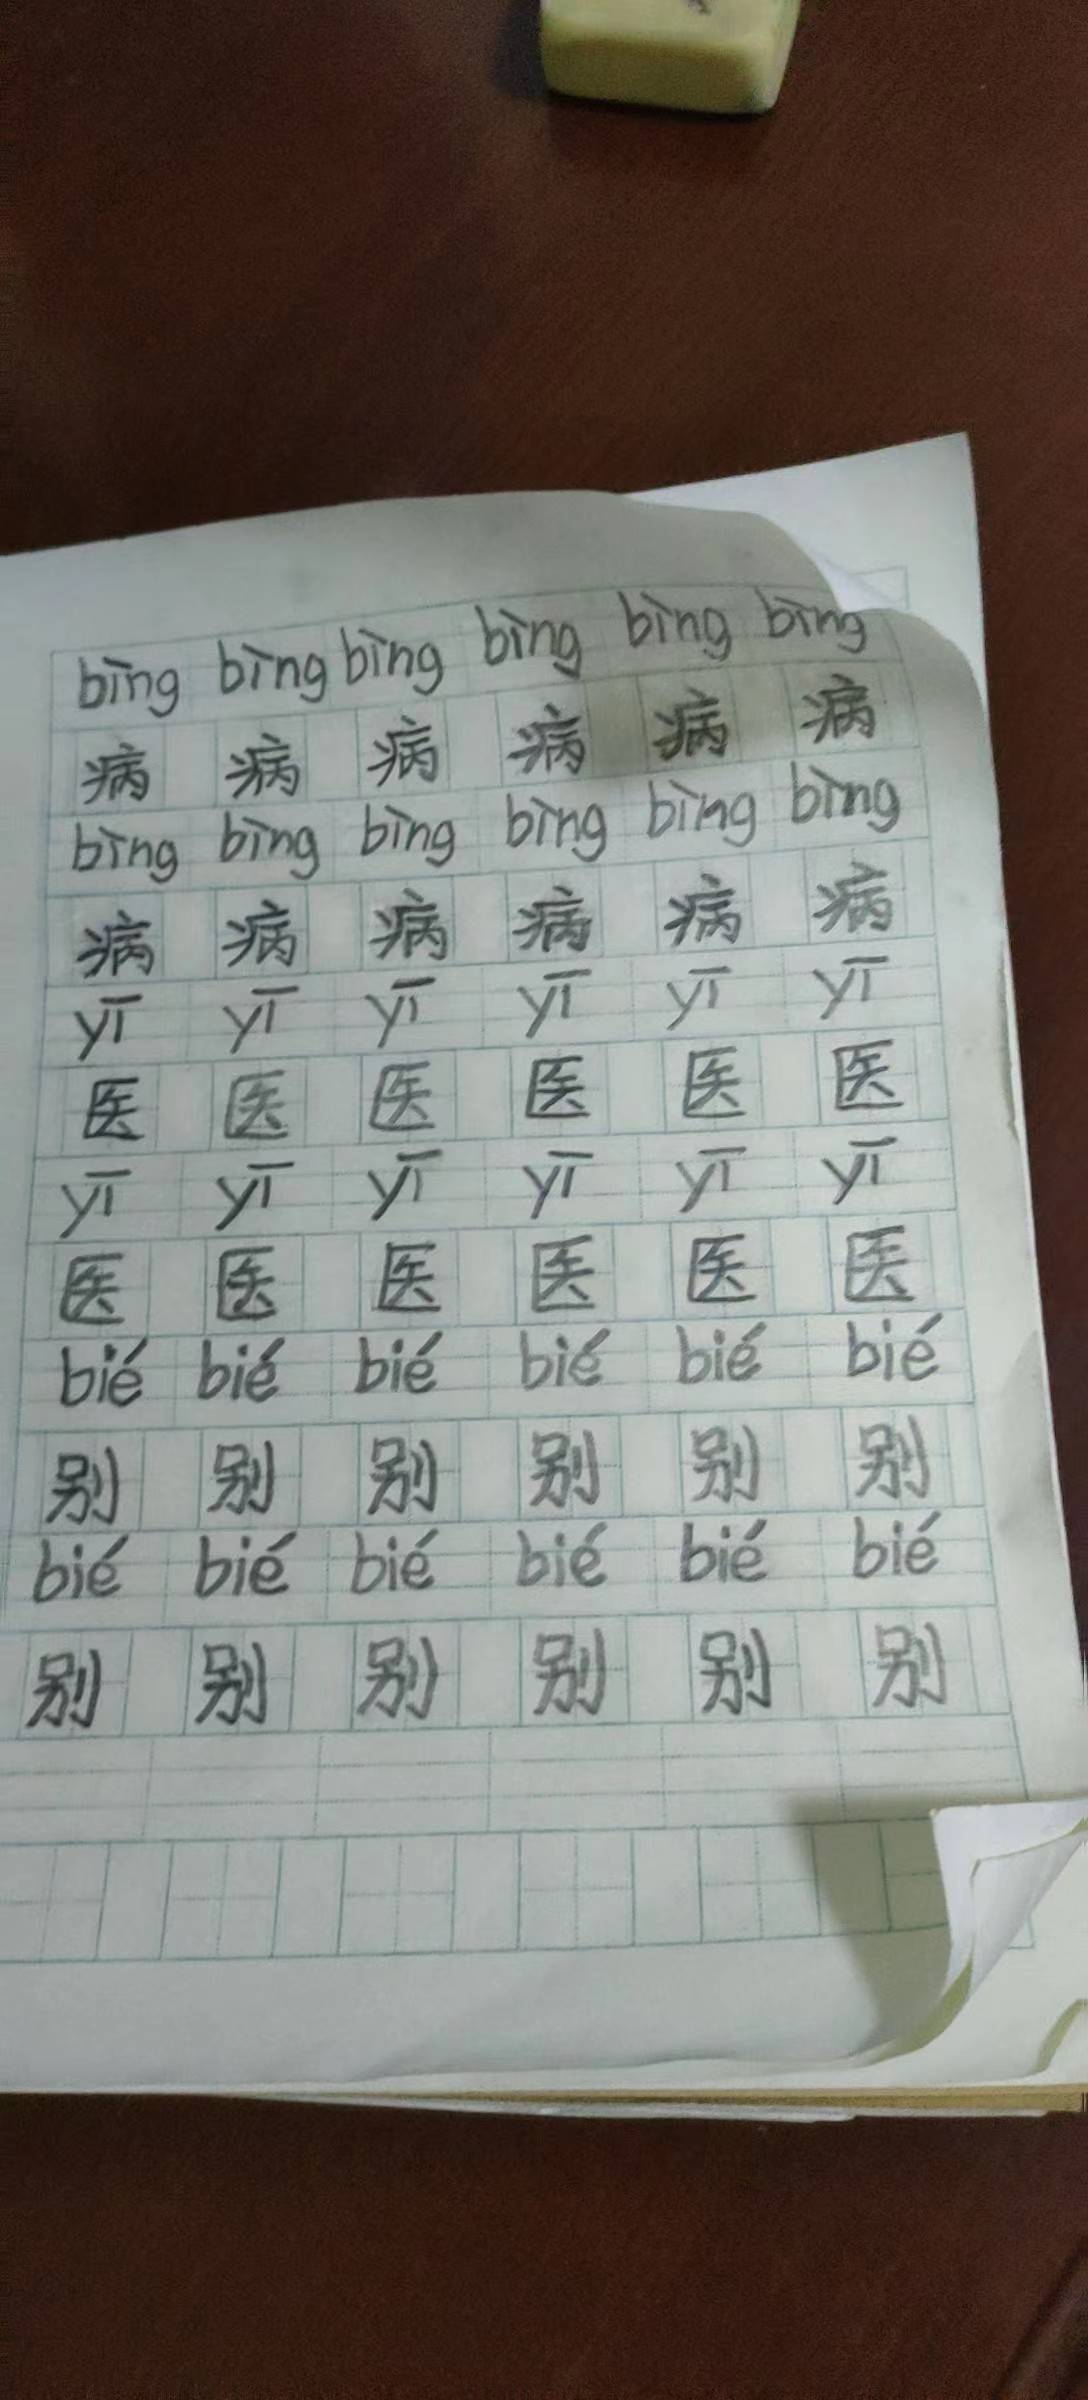 bìng bìng bìng bìng bìng bìng
病 病 病 病 病 病
bìng bìng bìng bìng bìng bìng
病 病 病 病 病 病
yī yī yī yī yī yī
医 医 医 医 医 医
yī yī yī yī yī yī
医 医 医 医 医 医
bié bié bié bié bié bié
别 别 别 别 别 别
bié bié bié bié bié bié
别 别 别 别 别 别